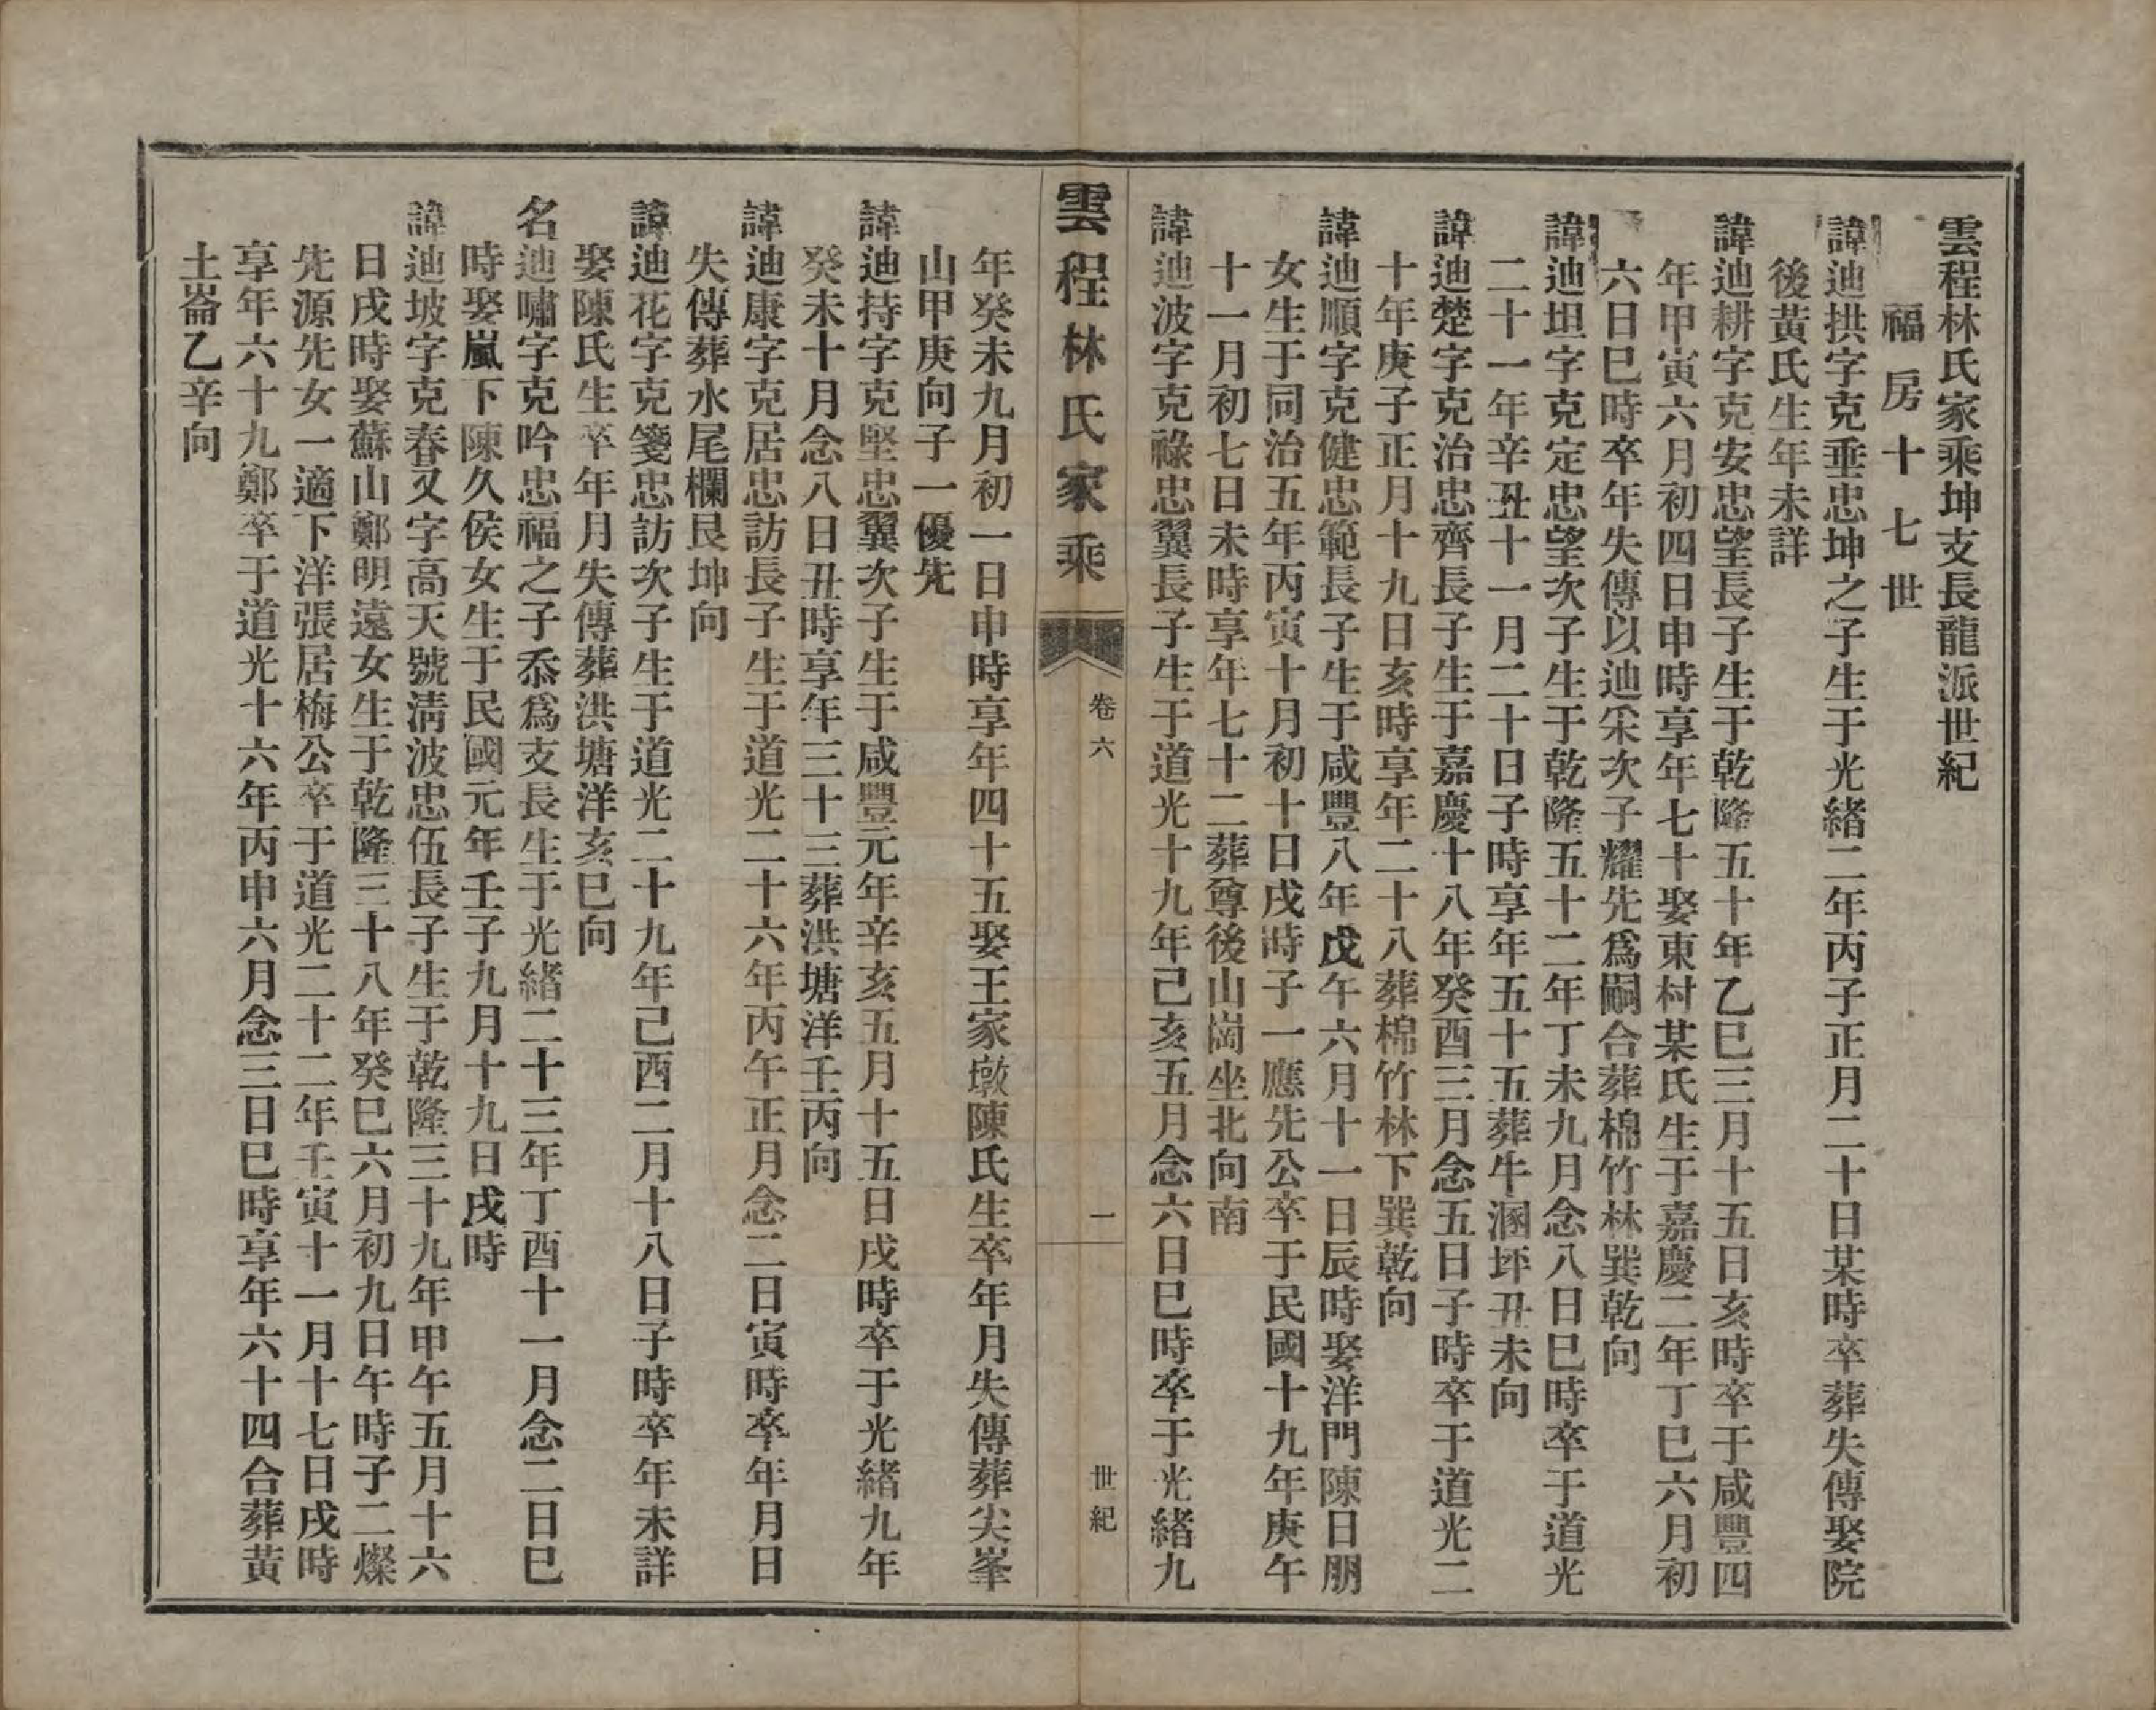 雲程林氏家乘坤支長龍派世紀
福房十七世
諱迪拱字克垂忠坤之子生于光緒二年丙子正月二十日某時卒葬失傳娶院
後黃氏生年未詳
諱迪耕字克安忠望長子生于乾隆五十年乙巳三月十五日亥時卒于咸豐四
年甲寅六月初四日申時享年七十娶東村某氏生于嘉慶二年丁巳六月初
六日巳時卒年失傳以迪采次子耀先爲嗣合葬棉竹林巽乾向
諱迪坦字克定忠望次子生于乾隆五十二年丁未九月念八日巳時卒于道光
二十一年辛丑十一月二十日子時享年五十五葬牛溷坪丑未向
諱迪楚字克治忠齊長子生于嘉慶十八年癸酉三月念五日子時卒于道光二
十年庚子正月十九日亥時享年二十八葬棉竹林下巽乾向
諱迪順字克健忠範長子生于咸豐八年戊午六月十一日辰時娶洋門陳日朋
女生于同治五年丙寅十月初十日戌時子一應先公卒于民國十九年庚午
十一月初七日未時享年七十二葬尊後山崗坐北向南
諱迪波字克祿忠翼長子生于道光十九年己亥五月念六日巳時卒于光緒九
雲程林氏家乘
卷六
一
世紀
年癸未九月初一日申時享年四十五娶王家墩陳氏生卒年月失傳葬尖峯
山甲庚向子一優先
諱迪持字克堅忠翼次子生于咸豐元年辛亥五月十五日戌時卒于光緒九年
癸未十月念八日丑時享年三十三葬洪塘洋壬丙向
諱迪康字克居忠訪長子生于道光二十六年丙午正月念二日寅時卒年月日
失傳葬水尾欄艮坤向
諱迪花字克箋忠訪次子生于道光二十九年己酉二月十八日子時卒年未詳
娶陳氏生卒年月失傳葬洪塘洋亥巳向
名迪嘯字克吟忠福之子忝爲支長生于光緒二十三年丁酉十一月念二日巳
時娶嵐下陳久侯女生于民國元年壬子九月十九日戌時
諱迪坡字克春又字高天號清波忠伍長子生于乾隆三十九年甲午五月十六
日戌時娶蘇山鄭明遠女生于乾隆三十八年癸巳六月初九日午時子二燦
先源先女一適下洋張居梅公卒于道光二十二年壬寅十一月十七日戌時
享年六十九鄭卒于道光十六年丙申六月念三日巳時享年六十四合葬黃
土崙乙辛向